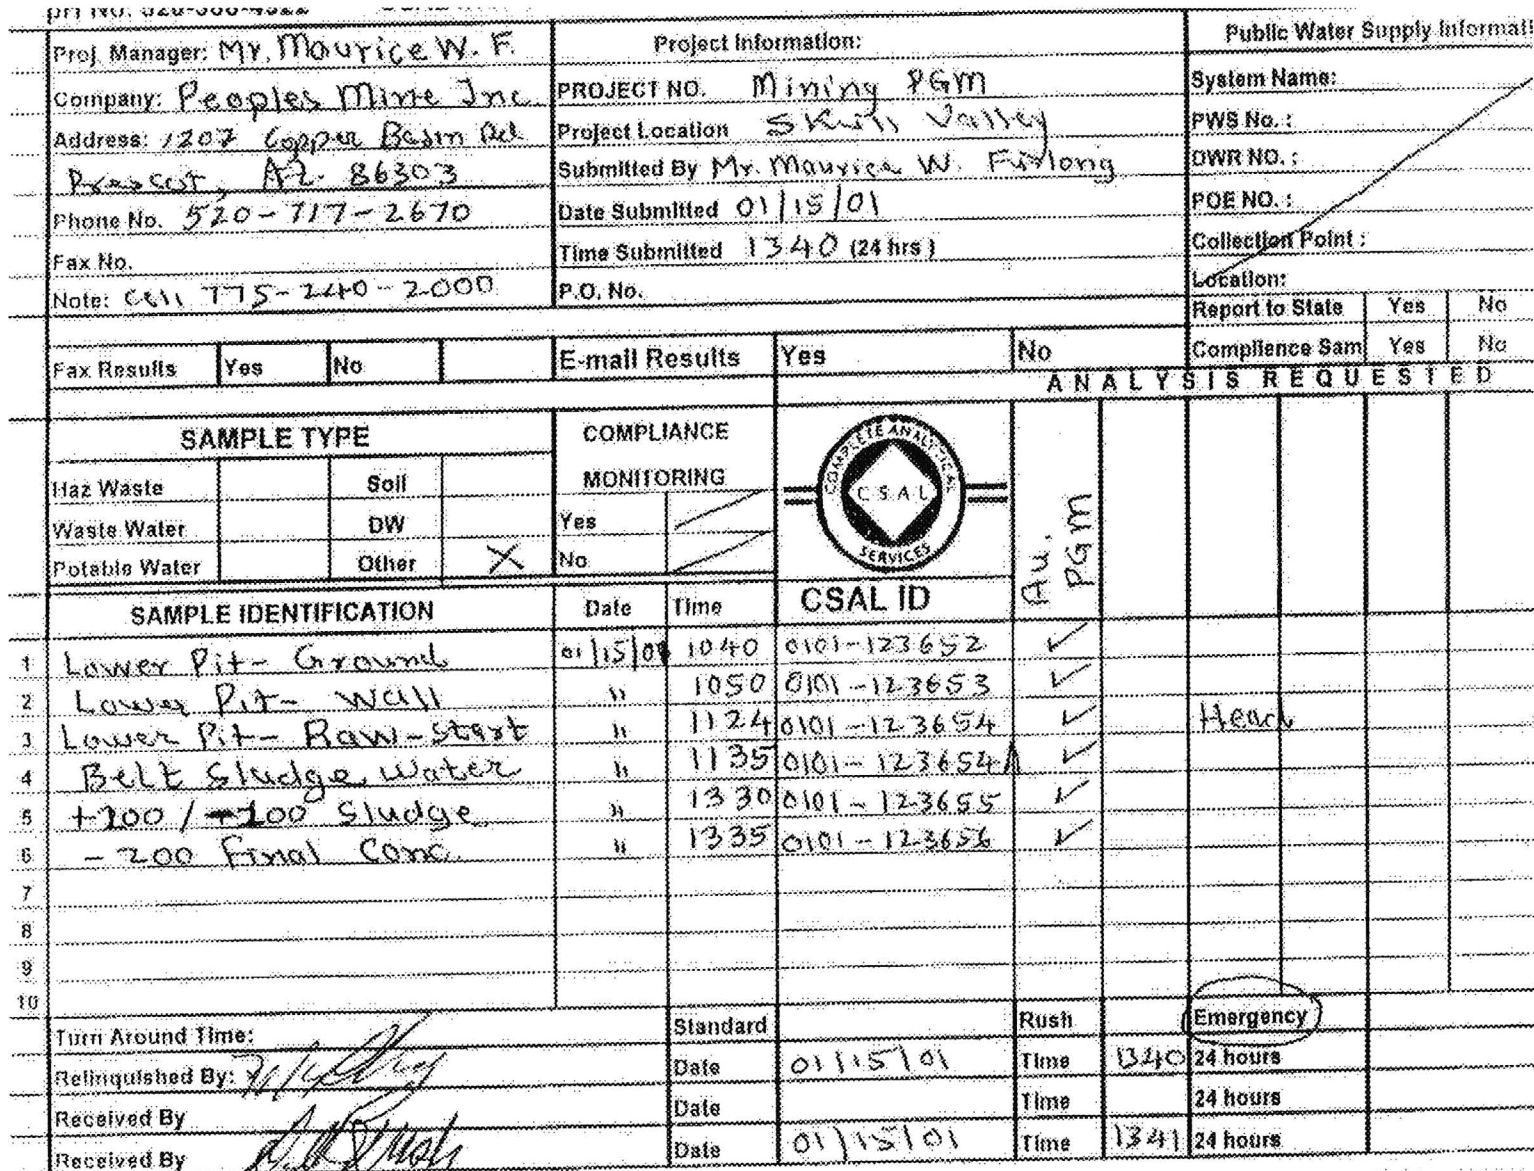 Proj. Manager: Mr. Maurice W. F.
Company: Peoples Mine Inc
Address: 1207 Copper Basin Rd
Prescot, AZ. 86303
Phone No. 520-717-2670
Fax No.
Note: Cell 775-240-2000
Project Information:
PROJECT NO. Mining PGM
Project Location Skull Valley
Submitted By Mr. Maurice W. Furlong
Date Submitted 01/15/01
Time Submitted 1340 (24 hrs)
P.O. No.
Public Water Supply Informati
System Name:
PWS No. :
DWR NO. :
POE NO. :
Collection Point :
Location:
Report to State Yes No
Complience Sam Yes No
Fax Results Yes No E-mail Results Yes No
ANALYSIS REQUESTED
SAMPLE TYPE
Haz Waste Soil
Waste Water DW
Potable Water Other X
COMPLIANCE
MONITORING
Yes
No
COMPLETE ANALYTICAL
CSAL
SERVICES
Au, PGM
SAMPLE IDENTIFICATION Date Time CSAL ID
1 Lower Pit- Ground 01/15/01 1040 0101-123652 ✓
2 Lower Pit- Wall " 1050 0101-123653 ✓
3 Lower Pit- Raw-Start " 1124 0101-123654 ✓ Head
4 Belt Sludge Water " 1135 0101-123654A ✓
5 +200/-100 Sludge " 1330 0101-123655 ✓
6 -200 Final Conc. " 1335 0101-123656 ✓
7
8
9
10
Turn Around Time: Standard Rush Emergency
Relinquished By: Date 01/15/01 Time 1340 24 hours
Received By Date Time 24 hours
Received By Date 01/15/01 Time 1341 24 hours